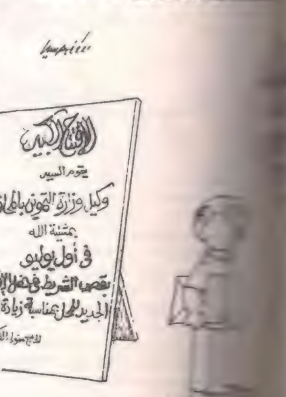 الافتتاح الكبير
يقوم السيد
وكيل وزارة التموين
بمشيئة الله
في أول يوليو
بقص الشريط في حفل
الجديد للمحل بمناسبة زيادة